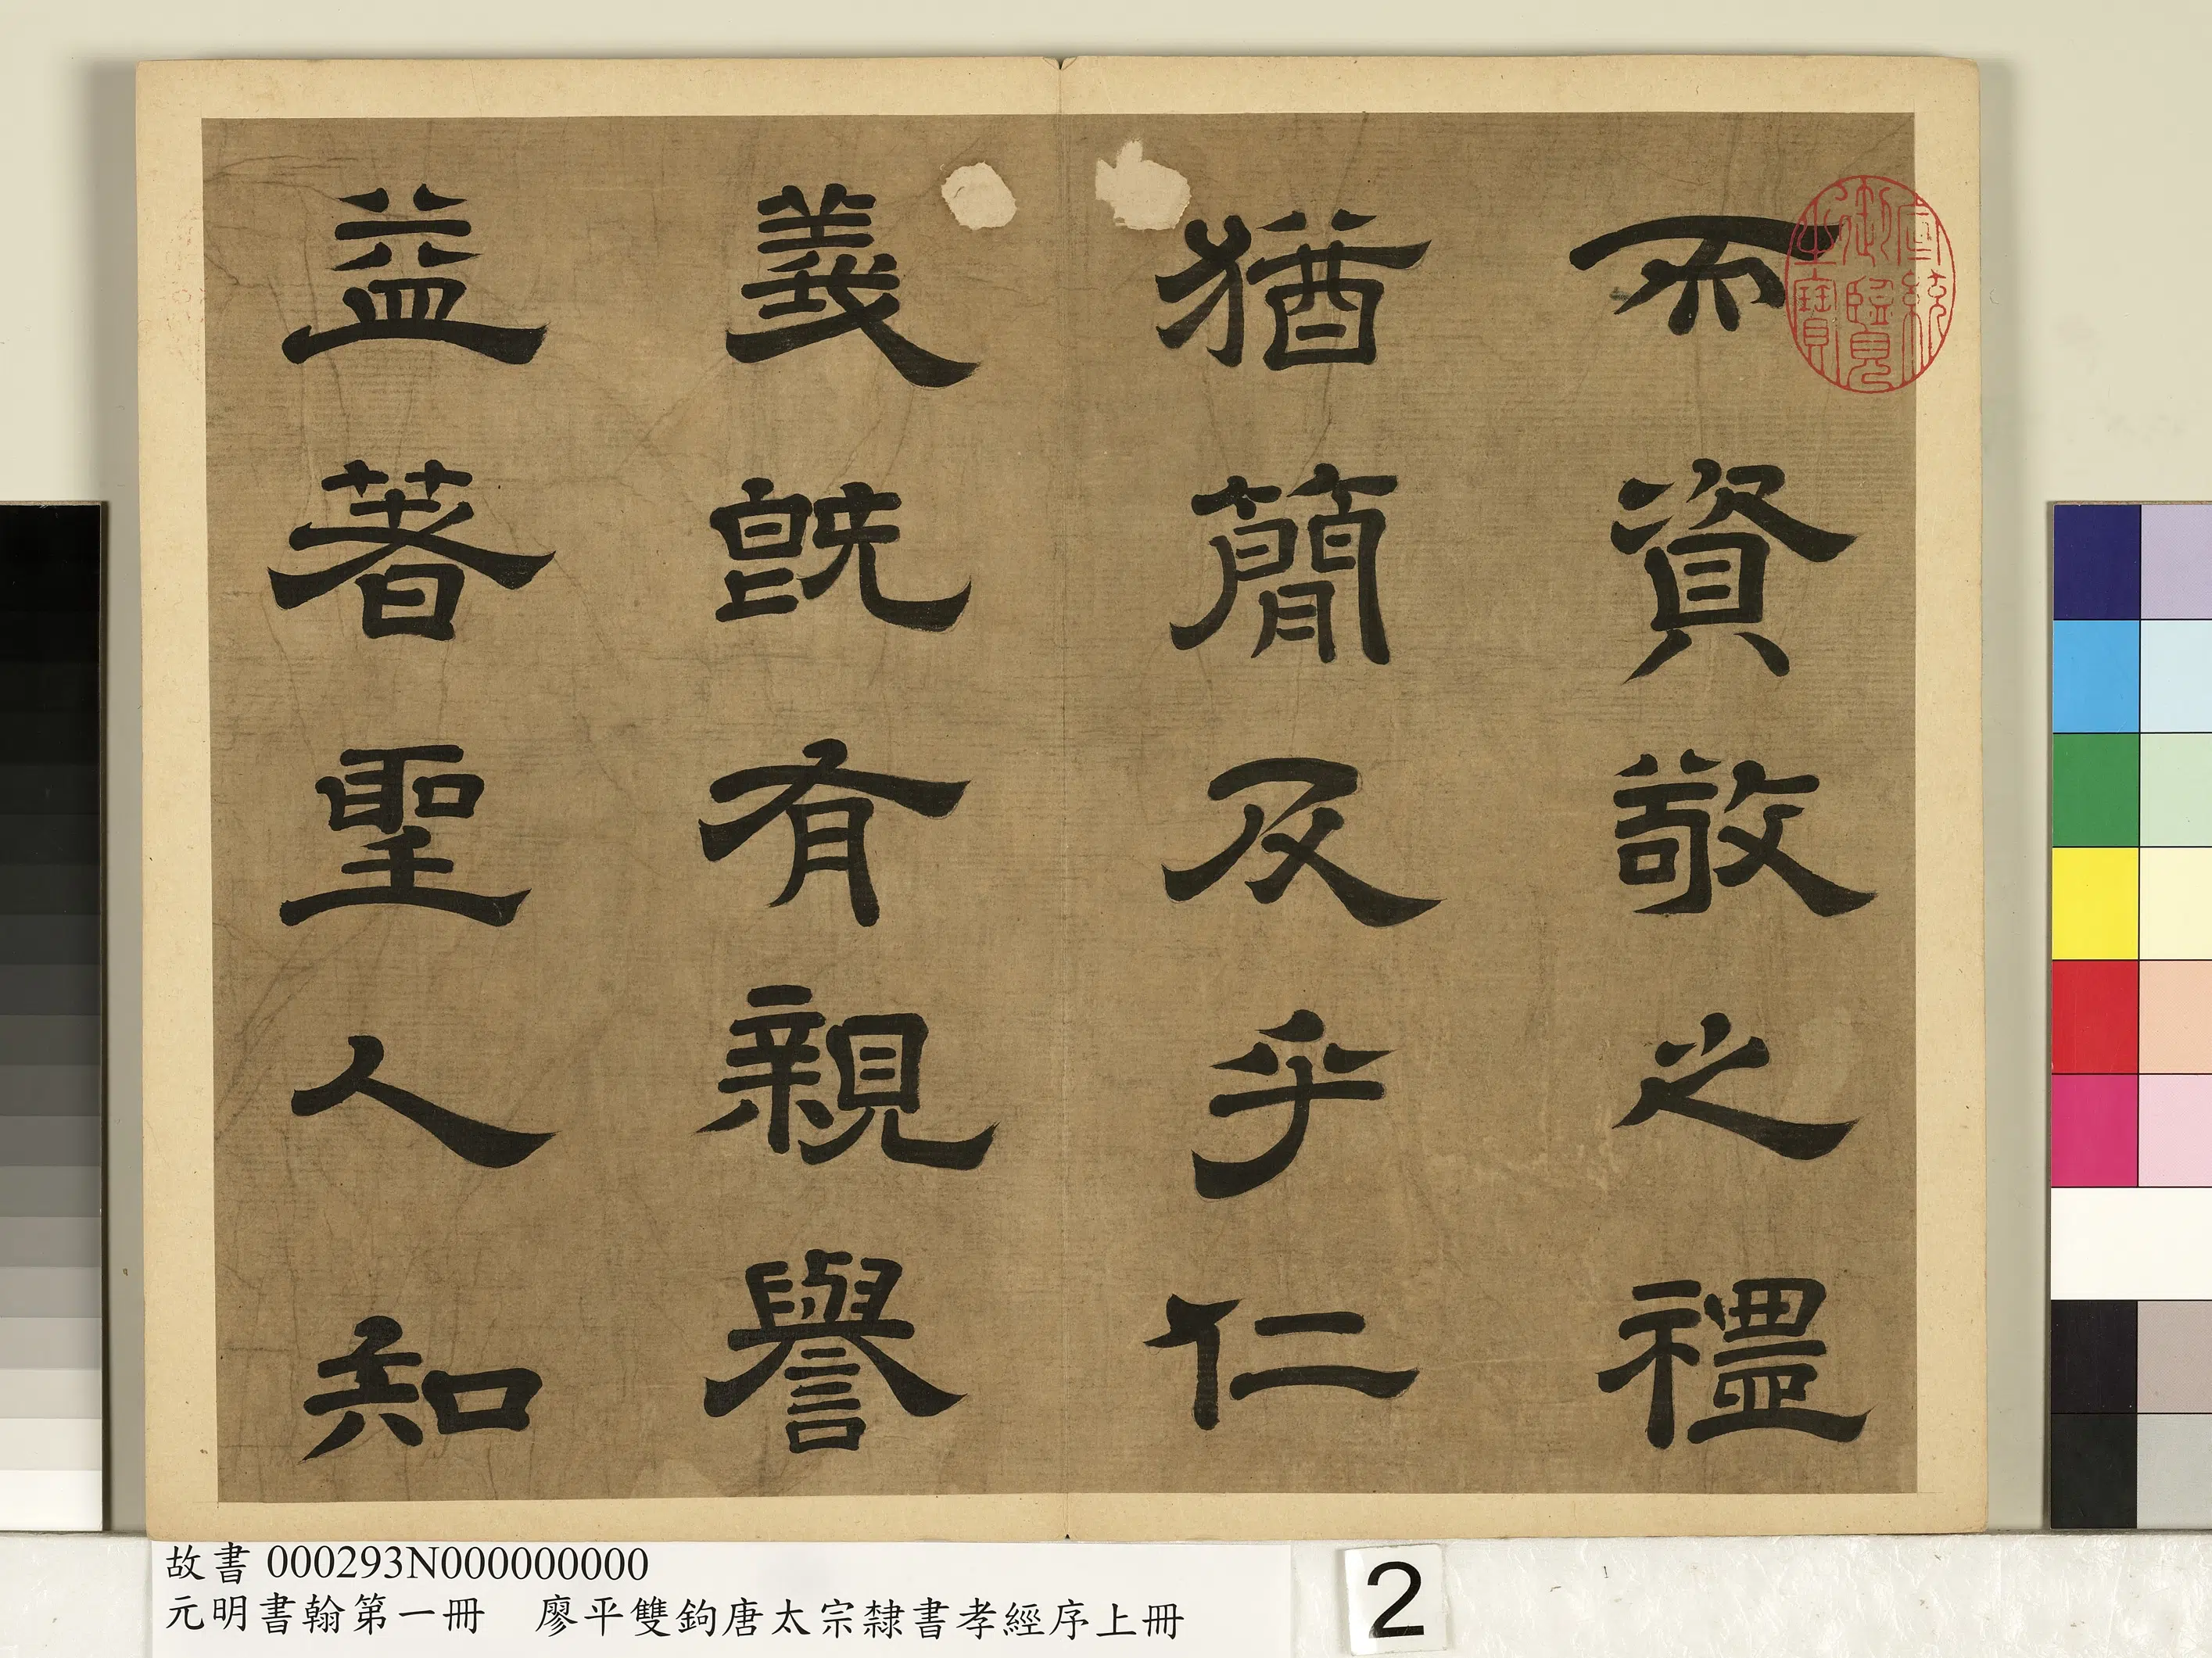 而資敬之禮
猶簡及乎仁
義既有親譽
益著聖人知
宣統
御覽
之寶
故書 000293N000000000
元明書翰第一冊 廖平雙鉤唐太宗隸書孝經序上冊
2